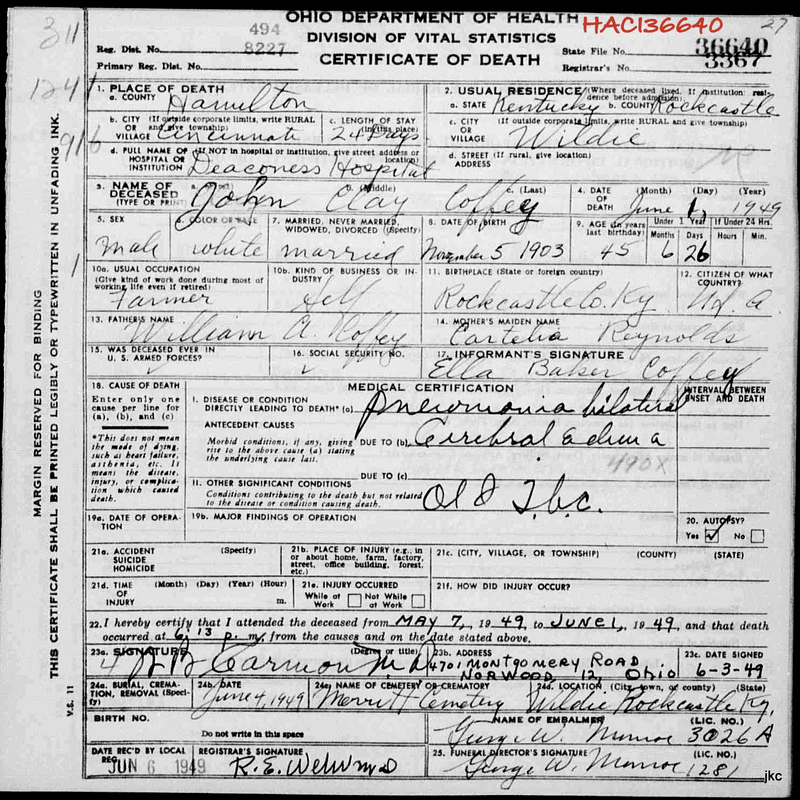 OHIO DEPARTMENT OF HEALTH HAC136640 27
311 494 DIVISION OF VITAL STATISTICS
Reg. Dist. No. 8227 State File No. 36640
Primary Reg. Dist. No. CERTIFICATE OF DEATH Registrar's No. 3367
1241
916
1
MARGIN RESERVED FOR BINDING
THIS CERTIFICATE SHALL BE PRINTED LEGIBLY OR TYPEWRITTEN IN UNFADING INK.
V.S. 11
1. PLACE OF DEATH
a. COUNTY Hamilton
2. USUAL RESIDENCE (Where deceased lived. If institution: residence before admission).
a. STATE Kentucky b. COUNTY Rockcastle
b. CITY (If outside corporate limits, write RURAL
OR and give township)
VILLAGE Cincinnati
c. LENGTH OF STAY
(in this place)
24 Days
c. CITY (If outside corporate limits, write RURAL and give township)
OR
VILLAGE Wildie
d. FULL NAME OF (If NOT in hospital or institution, give street address or location)
HOSPITAL OR
INSTITUTION Deaconess Hospital
d. STREET (If rural, give location)
ADDRESS
3. NAME OF a. (Middle) c. (Last)
DECEASED John Clay Coffey
(TYPE OR PRINT)
4. DATE (Month) (Day) (Year)
OF
DEATH June 1, 1949
5. SEX
male
6. COLOR OR RACE
white
7. MARRIED, NEVER MARRIED,
WIDOWED, DIVORCED (Specify)
married
8. DATE OF BIRTH
November 5 1903
9. AGE (In years
last birthday)
45
Under 1 Year If Under 24 Hrs.
Months Days Hours Min.
6 26
10a. USUAL OCCUPATION
(Give kind of work done during most of
working life even if retired)
Farmer
10b. KIND OF BUSINESS OR INDUSTRY
Self
11. BIRTHPLACE (State or foreign country)
Rockcastle Co. Ky
12. CITIZEN OF WHAT
COUNTRY?
13. FATHER'S NAME
William A. Coffey
14. MOTHER'S MAIDEN NAME
Cartelia Reynolds
15. WAS DECEASED EVER IN
U. S. ARMED FORCES?
16. SOCIAL SECURITY NO.
17. INFORMANT'S SIGNATURE
Ella Baker Coffey
18. CAUSE OF DEATH
Enter only one
cause per line for
(a), (b), and (c)
*This does not mean
the mode of dying,
such as heart failure,
asthenia, etc. It
means the disease,
injury, or complication
which caused
death.
MEDICAL CERTIFICATION
INTERVAL BETWEEN
ONSET AND DEATH
I. DISEASE OR CONDITION
DIRECTLY LEADING TO DEATH* (a) Pneumonia bilateral
ANTECEDENT CAUSES
Morbid conditions, if any, giving
rise to the above cause (a) stating
the underlying cause last.
DUE TO (b) Cerebral edema
490X
DUE TO (c)
II. OTHER SIGNIFICANT CONDITIONS
Conditions contributing to the death but not related
to the disease or condition causing death.
Old T.b.c.
19a. DATE OF OPERATION
19b. MAJOR FINDINGS OF OPERATION
20. AUTOPSY?
Yes No
21a. ACCIDENT (Specify)
SUICIDE
HOMICIDE
21b. PLACE OF INJURY (e.g., in
or about home, farm, factory,
street, office building, forest,
etc.)
21c. (CITY, VILLAGE, OR TOWNSHIP) (COUNTY) (STATE)
21d. TIME (Month) (Day) (Year) (Hour)
OF
INJURY m.
21e. INJURY OCCURRED
While at Work Not While at Work
21f. HOW DID INJURY OCCUR?
22. I hereby certify that I attended the deceased from MAY 7, 1949, to JUNE 1, 1949, and that death
occurred at 6:13 p. m., from the causes and on the date stated above.
23a. SIGNATURE (Degree or title)
Carmon M.D.
23b. ADDRESS
4701 MONTGOMERY ROAD
NORWOOD, 12, Ohio
23c. DATE SIGNED
6-3-49
24a. BURIAL, CREMATION, REMOVAL (Specify)
24b. DATE
June 4, 1949
24c. NAME OF CEMETERY OR CREMATORY
Merritt Cemetery
24d. LOCATION (City, town, or county) (State)
Wildie Rockcastle Ky.
BIRTH NO.
Do not write in this space
NAME OF EMBALMER (LIC. NO.)
George W. Monroe 3026A
DATE REC'D BY LOCAL
REG.
JUN 6 1949
REGISTRAR'S SIGNATURE
R. E. Wehr M.D
25. FUNERAL DIRECTOR'S SIGNATURE (LIC. NO.)
George W. Monroe 1281
jkc